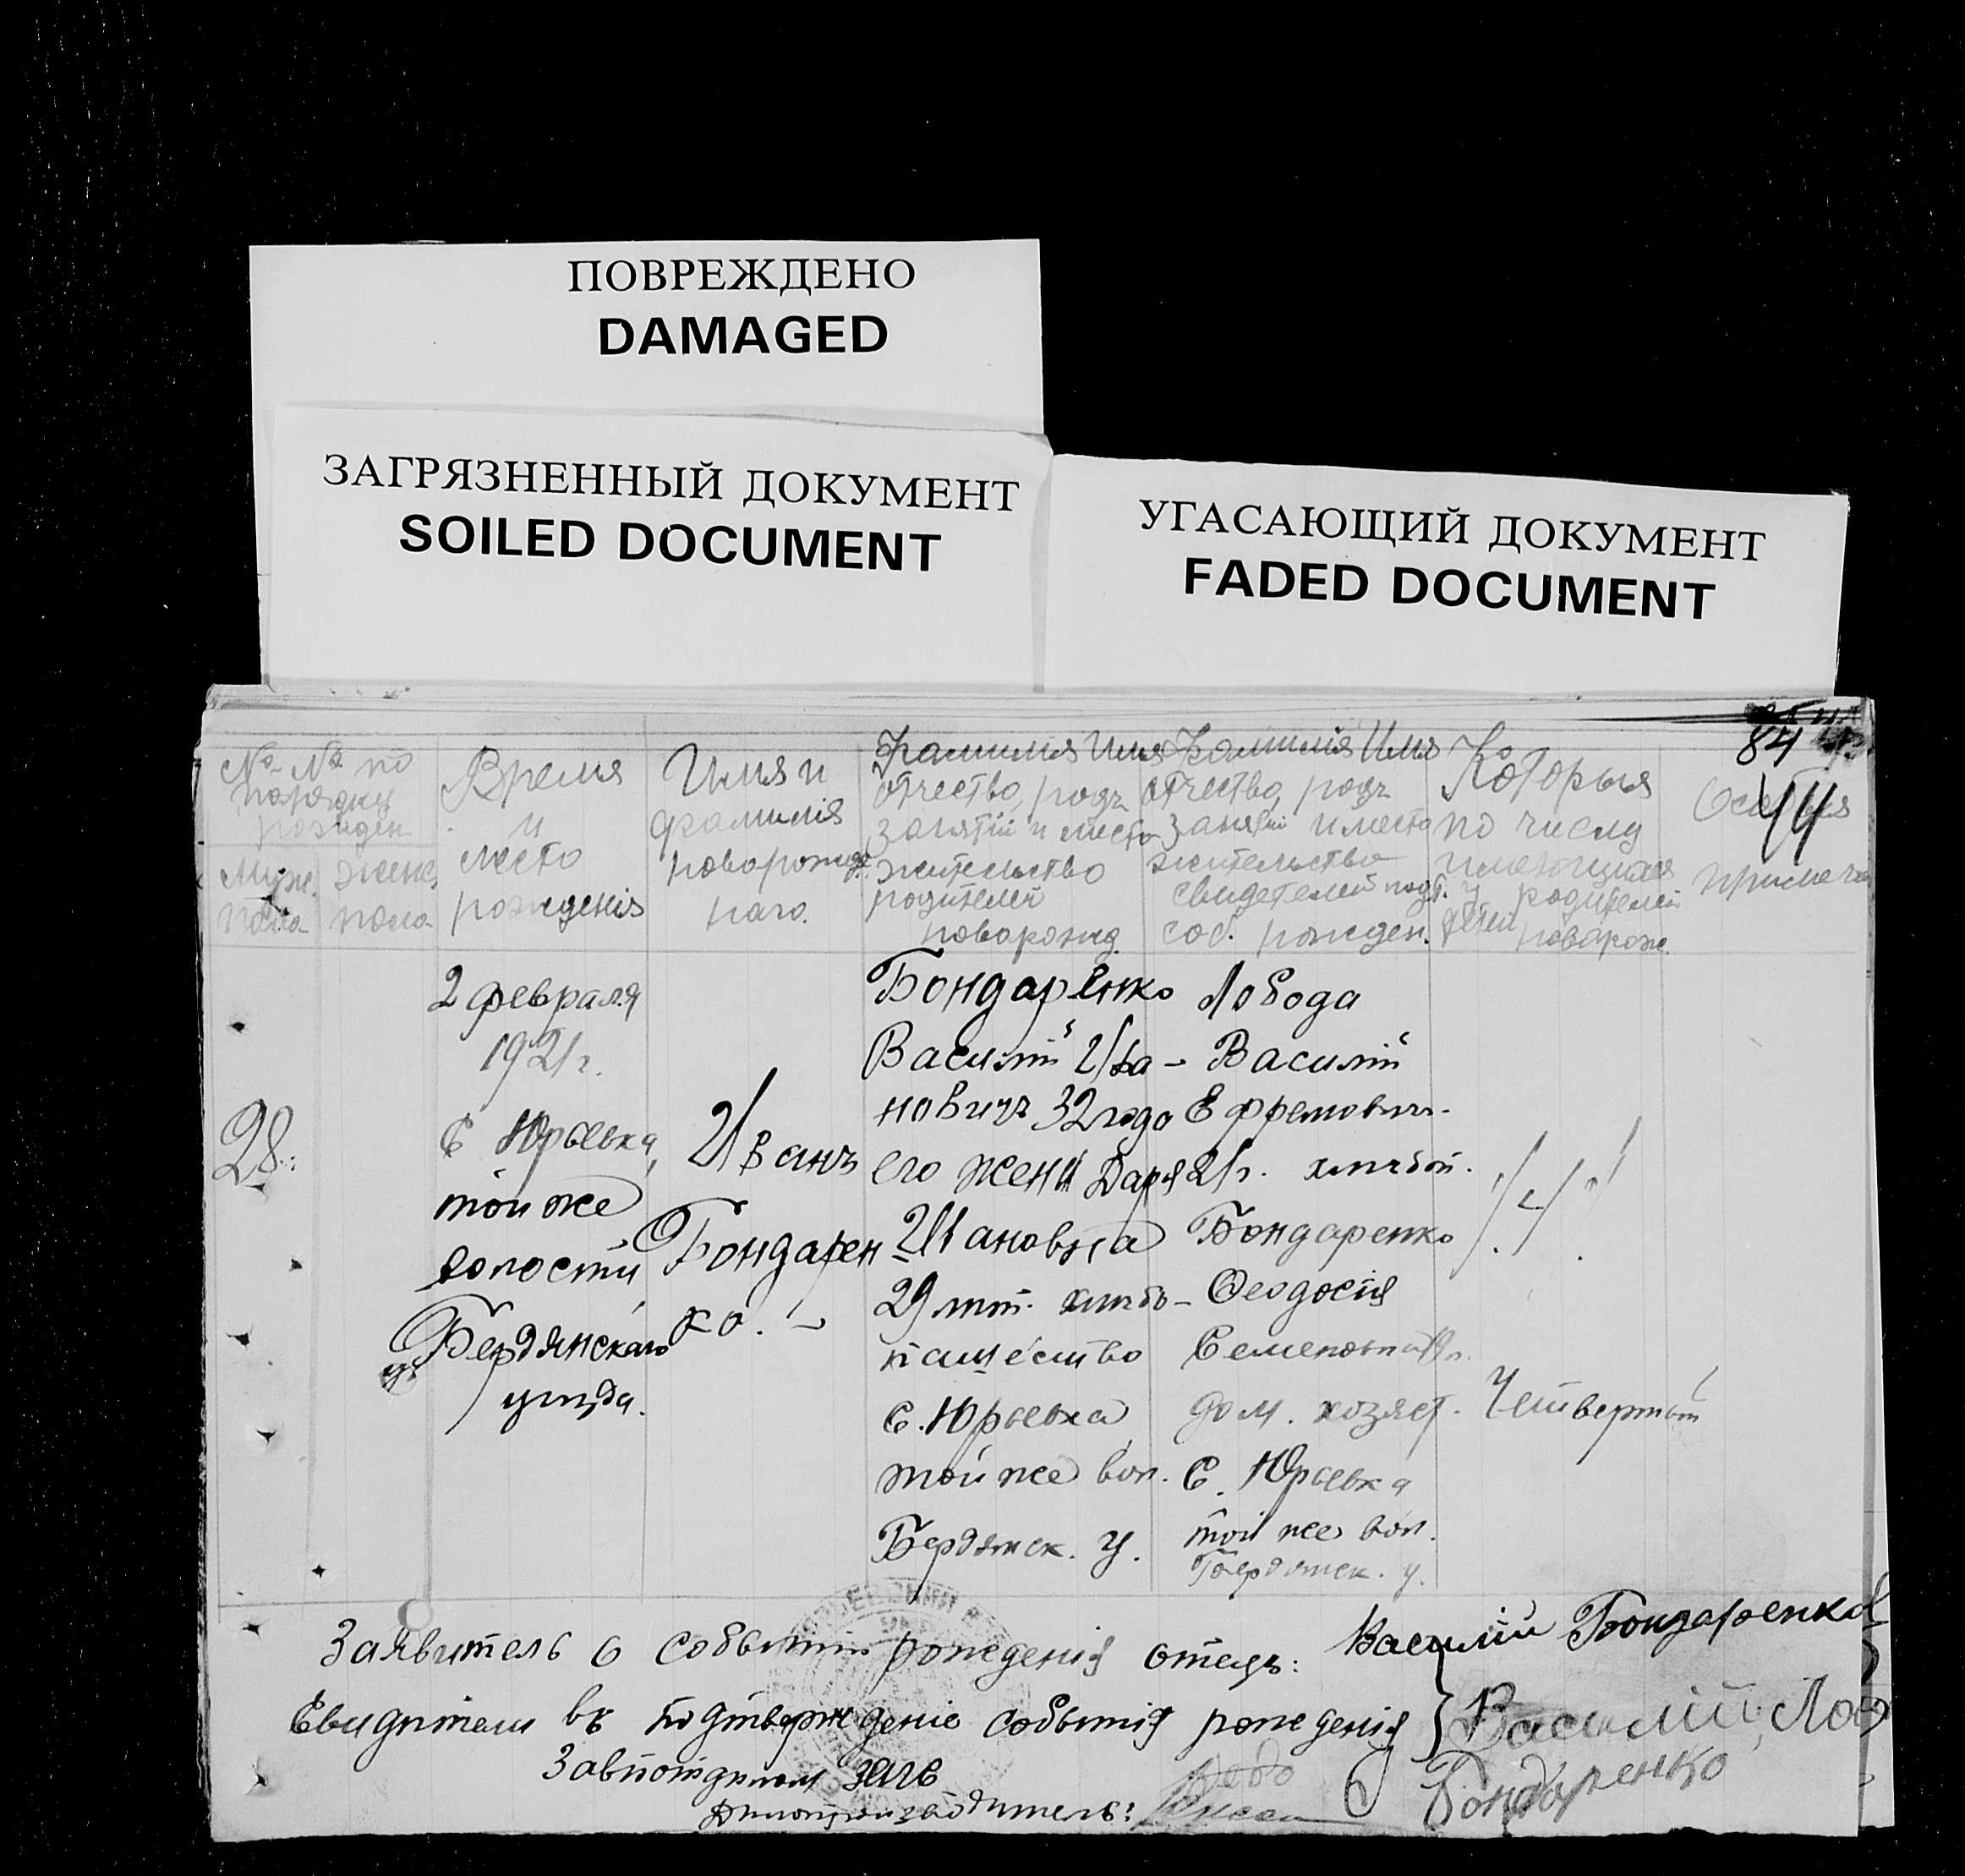 ПОВРЕЖДЕНО
DAMAGED
ЗАГРЯЗНЕННЫЙ ДОКУМЕНТ
SOILED DOCUMENT
УГАСАЮЩИЙ ДОКУМЕНТ
FADED DOCUMENT
84
44
№ № по
порядку
рожден
Муж.
пола
женс.
пола
Время
и
место
рожденія
Имя и
фамилія
новорожд
наго.
Фамилія Имя
отчество, родъ
занятій и место
жительство
родителей
новорожд.
Фамилія Имя
отчество, родъ
занятій и место
жительство
свидетелей подт.
соб. рожден.
Которыя
по числу
имеющихся
у родителей
детей новорож.
Особыя
примеча
28.
2 февраля
1921 г.
С Юрьевка,
той же
волости,
Бердянскаго
уезда.
Иванъ
Бондарен
ко. –
Бондаренко
Василій Ива–
новичъ 32 года
его жена Дарья
Ивановна
29 лѣт. хлѣбо–
пашество
С. Юрьевка
той же вол.
Бердянск. у.
Лобода
Василій
Ефремович.
21 г. хлѣбоп.
Бондаренко
Феодосія
Семеновна
дом. хозяст.
С. Юрьевка
той же вол.
Бердянск. у.
Четвертый
Заявитель о событіи рожденія отецъ: Василій Бондаренко
Свидѣтели въ подтвержденіе событія рожденія } Василій Лоб
Бондаренко
Завподотдѣлом загс
Дѣлопроизводитель: